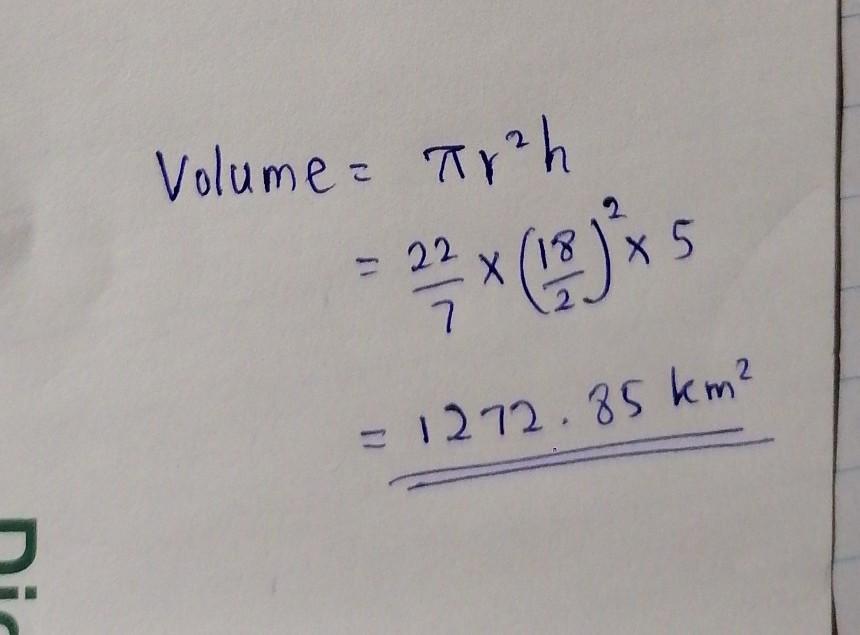 Volume = πr²h
= 22/7 × (18/2)² × 5
= 1272.85 km²